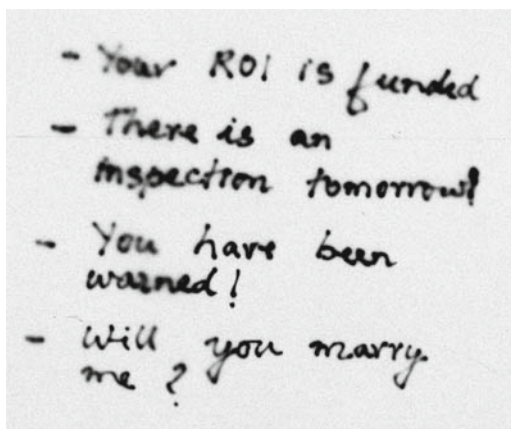 - Your ROI is funded
- There is an
inspection tomorrow!
- You have been
warned!
- Will you marry
me ?